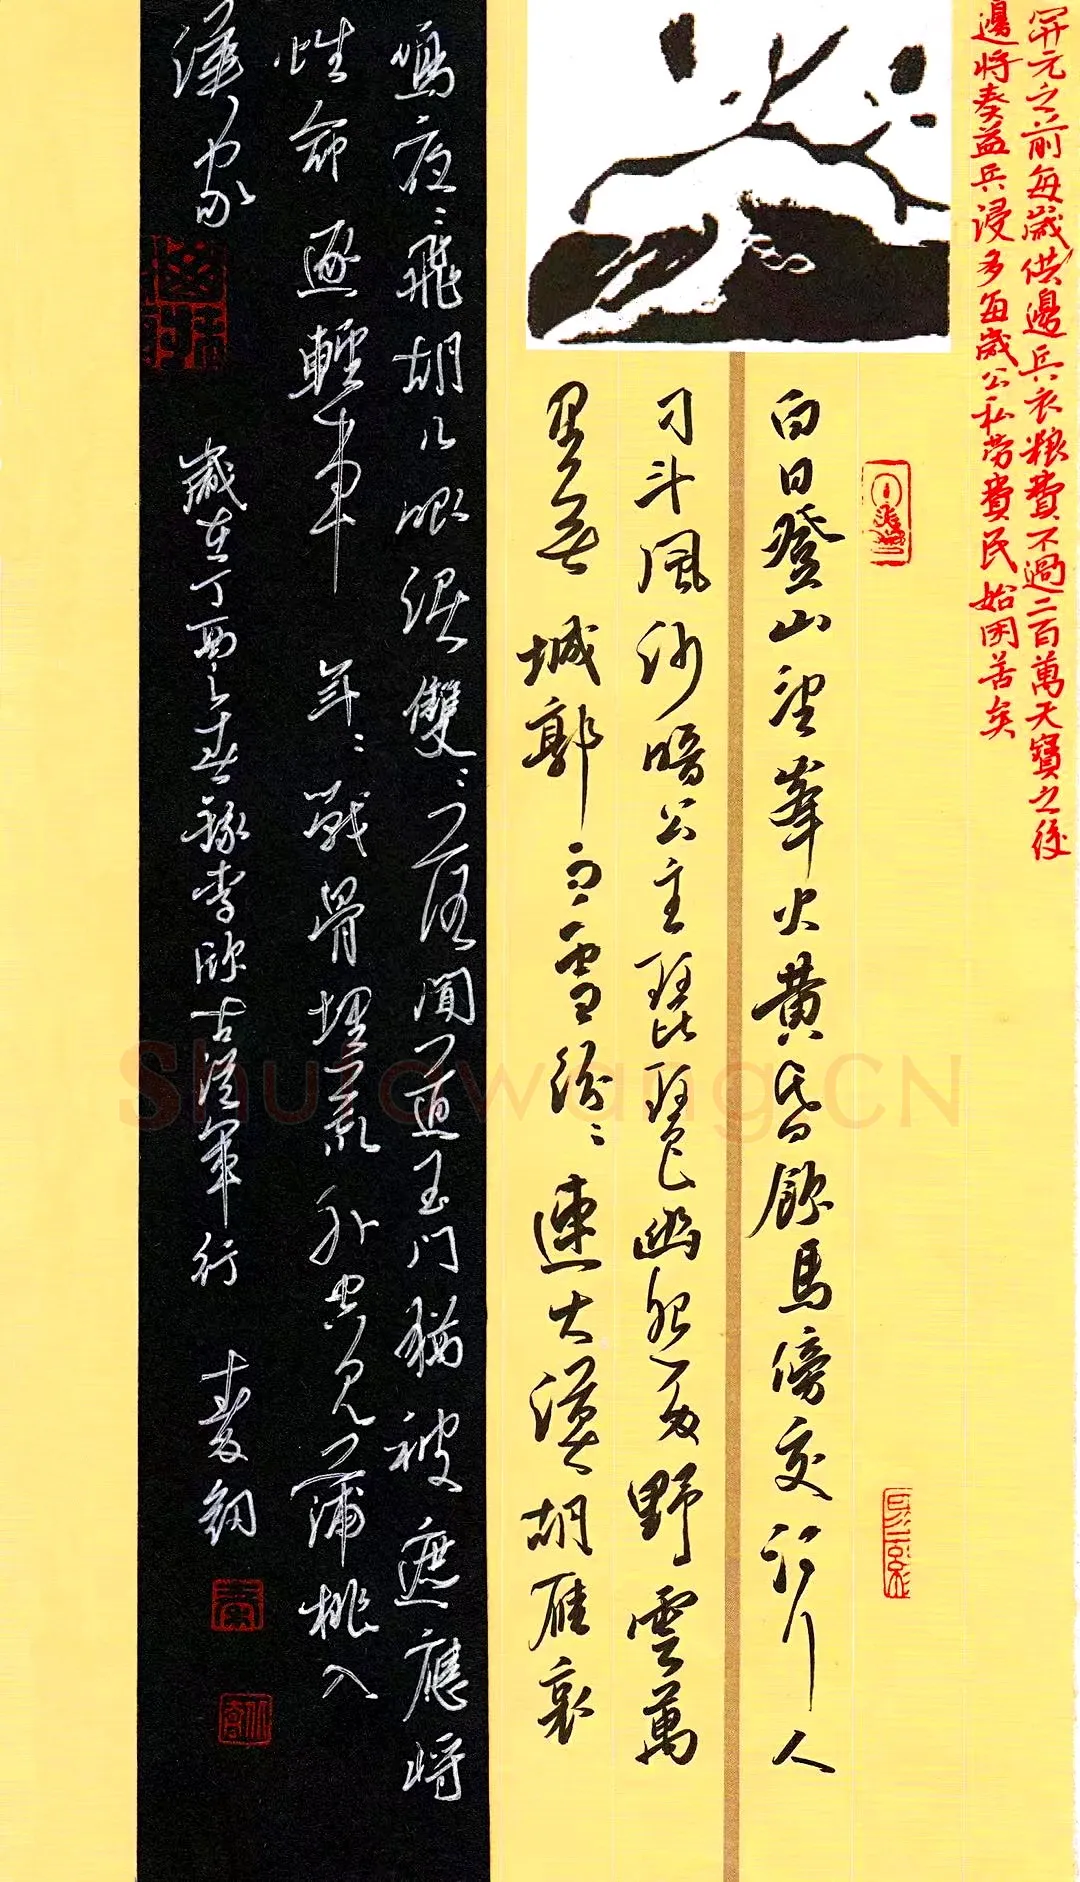 開元之前每歲供邊兵衣糧費不過二百萬天寶之後
邊將奏益兵浸多每歲公私勞費民始困苦矣
白日登山望峯火黃昏飲馬傍交河行人
刁斗風沙暗公主琵琶幽怨多野雲萬
里無城郭雨雪紛〻連大漠胡雁哀
鳴夜〻飛胡兒眼淚雙〻落聞道玉門猶被遮應將
性命逐輕車年〻戰骨埋荒外空見蒲桃入
漢家
歲在丁酉之春錄李頎古從軍行
Shufawang.CN